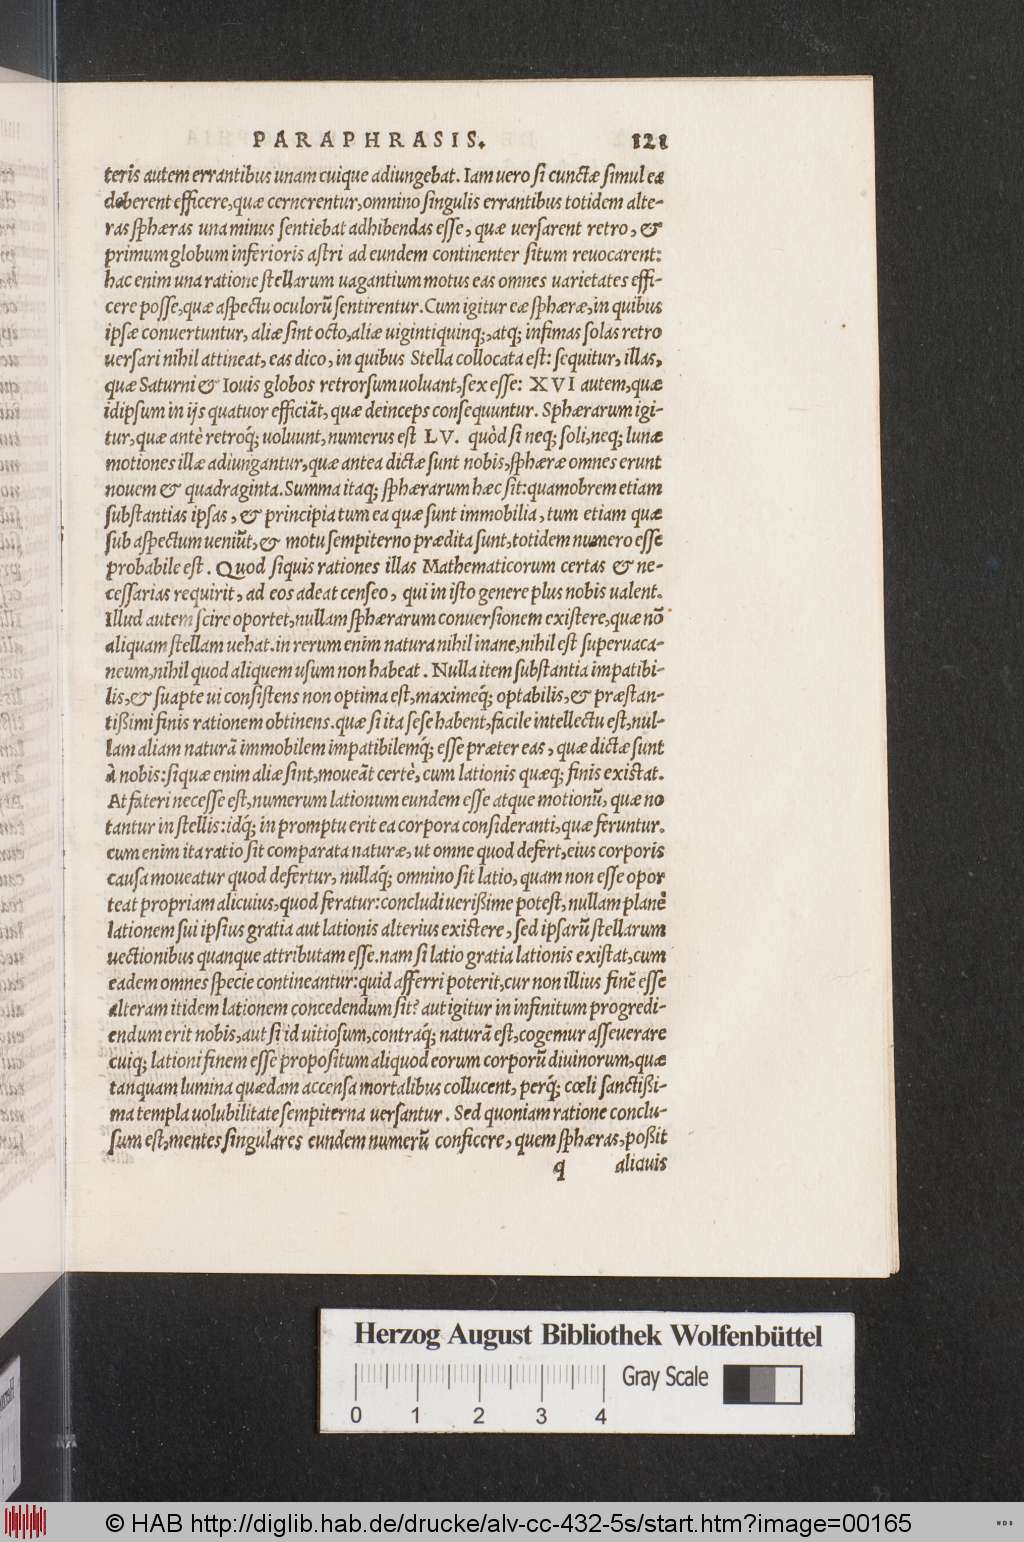 PARAPHRASIS. 121
teris autem errantibus unam cuique adiungebat. Iam uero si cunctæ simul ea
deberent efficere, quæ cernerentur, omnino singulis errantibus totidem alte-
ras sphæras una minus sentiebat adhibendas esse, quæ uersarent retro, &
primum globum inferioris astri ad eundem continenter situm reuocarent:
hac enim una ratione stellarum uagantium motus eas omnes uarietates effi-
cere posse, quæ aspectu oculorũ sentirentur. Cum igitur eæ sphæræ, in quibus
ipsæ conuertuntur, aliæ sint octo, aliæ uigintiquinq;, atq; infimas solas retro
uersari nihil attineat, eas dico, in quibus Stella collocata est: sequitur, illas,
quæ Saturni & Iouis globos retrorsum uoluant, sex esse: XVI autem, quæ
idipsum in ijs quatuor efficiãt, quæ deinceps consequuntur. Sphærarum igi-
tur, quæ antè retroq́; uoluunt, numerus est LV. quòd si neq; soli, neq; lunæ
motiones illæ adiungantur, quæ antea dictæ sunt nobis, sphæræ omnes erunt
nouem & quadraginta. Summa itaq; sphærarum hæc sit: quamobrem etiam
substantias ipsas, & principia tum ea quæ sunt immobilia, tum etiam quæ
sub aspectum ueniũt, & motu sempiterno prædita sunt, totidem numero esse
probabile est. Quod siquis rationes illas Mathematicorum certas & ne-
cessarias requirit, ad eos adeat censeo, qui in isto genere plus nobis ualent.
Illud autem scire oportet, nullam sphærarum conuersionem existere, quæ nõ
aliquam stellam uehat. in rerum enim natura nihil inane, nihil est superuaca-
neum, nihil quod aliquem usum non habeat. Nulla item substantia impatibi-
lis, & suapte ui consistens non optima est, maximeq́; optabilis, & præstan-
tißimi finis rationem obtinens. quæ si ita sese habent, facile intellectu est, nul-
lam aliam naturã immobilem impatibilemq́; esse præter eas, quæ dictæ sunt
à nobis: si quæ enim aliæ sint, moueãt certè, cum lationis quæq; finis existat.
At fateri necesse est, numerum lationum eundem esse atque motionũ, quæ no
tantur in stellis: idq́; in promptu erit ea corpora consideranti, quæ feruntur.
cum enim ita ratio sit comparata naturæ, ut omne quod defert, eius corporis
causa moueatur quod defertur, nullaq́; omnino sit latio, quam non esse opor
teat propriam alicuius, quod feratur: concludi uerißime potest, nullam planè
lationem sui ipsius gratia aut lationis alterius existere, sed ipsarũ stellarum
uectionibus quanque attributam esse. nam si latio gratia lationis existat, cum
eadem omnes specie contineantur: quid afferri poterit, cur non illius finẽ esse
alteram itidem lationem concedendum sit? aut igitur in infinitum progredi-
endum erit nobis, aut si id uitiosum, contraq́; naturã est, cogemur asseuerare
cuiq; lationi finem esse propositum aliquod eorum corporũ diuinorum, quæ
tanquam lumina quædam accensa mortalibus collucent, perq́; cœli sanctißi-
ma templa uolubilitate sempiterna uersantur. Sed quoniam ratione conclu-
sum est, mentes singulares eundem numerũ conficere, quem sphæras, poßit
q aliquis
Herzog August Bibliothek Wolfenbüttel
Gray Scale
0 1 2 3 4
© HAB http://diglib.hab.de/drucke/alv-cc-432-5s/start.htm?image=00165
WDB